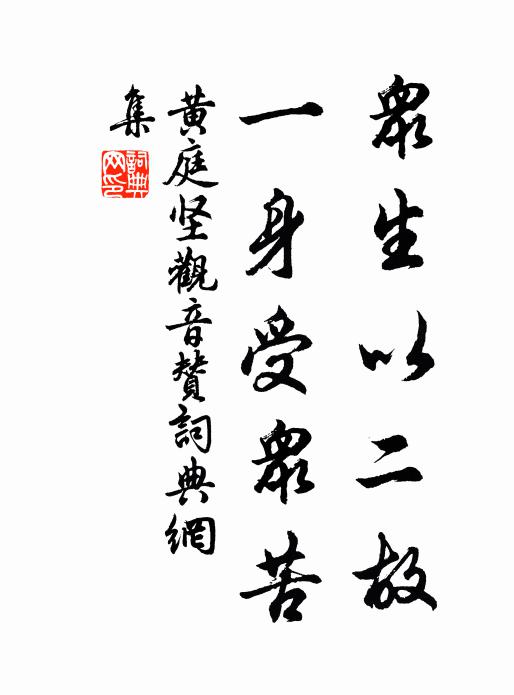 眾生以二故
一身受眾苦
黄庭坚觀音贊詞典網
集
詞典
网印